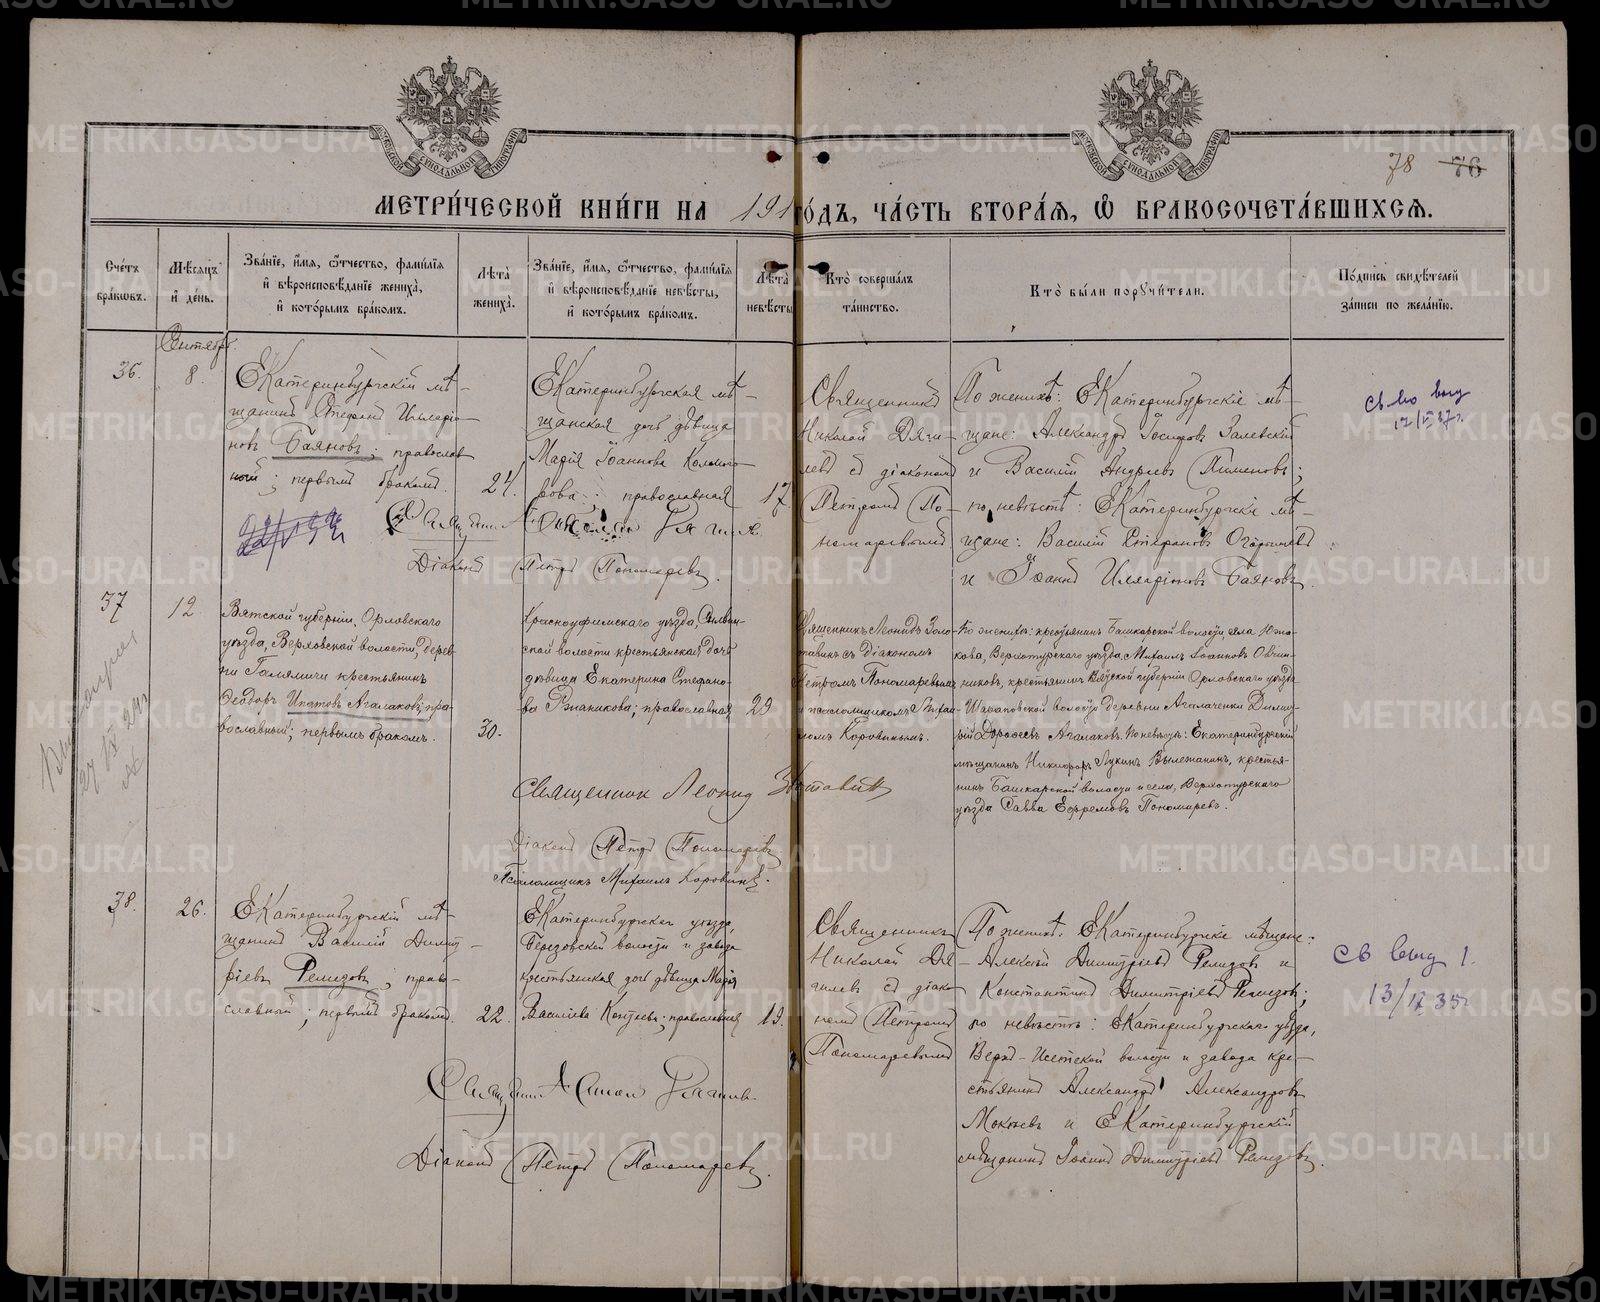 МЕТРИ́ЧЕСКОЙ КНИ́ГИ НА 191 ГО́ДЪ, ЧА́СТЬ ВТОРА́Я, Ѿ БРАКОСОЧЕТА́ВШИХСЯ.
78 76
Сче́тъ бра́кωвъ.
Мѣ́сяцъ и҆ де́нь.
Зва́нїе, и҆́мя, ѻ҆́тчество, фамі́лїя
и҆ вѣроисповѣ́данїе жениха̀,
и҆ кото́рымъ бра́комъ.
Лѣ́та̀ жениха̀.
Зва́нїе, и҆́мя, ѻ҆́тчество, фамі́лїя
и҆ вѣроисповѣ́данїе невѣ́сты,
и҆ кото́рымъ бра́комъ.
Лѣ́та̀ невѣ́сты
Кто̀ соверша́лъ
та́инство.
Кто̀ бы́ли порꙋчи́тели.
По́дпись свидѣ́телей
за́писи по жела́нїю.
Сентябрь.
36.
8.
Екатеринбургскій мѣ-
щанинъ Стефанъ Илларіо-
новъ Баяновъ; православ
ный; первымъ бракомъ.
24.
Екатеринбургская мѣ-
щанская дочь дѣвица
Марія Іоаннова Коломого-
рова; православная
17
Священникъ
Николай Дяги-
левъ съ діакономъ
Петромъ По-
номаревымъ
По женихѣ: Екатеринбургскіе мѣ-
щане: Александръ Іосифовъ Залевскій
и Василій Андреевъ Пименовъ;
по невѣстѣ: Екатеринбургскіе мѣ-
щане: Василій Стефановъ
и Іоаннъ Илларіоновъ Баяновъ.
Діаконъ Петръ Пономаревъ.
37
12.
Вятской губерніи, Орловскаго
уѣзда, Верховской волости, дерев-
ни Гамямичи крестьянинъ
Ѳеодоръ Ипатовъ Агалаковъ; пра-
вославный; первымъ бракомъ.
30.
Красноуфимскаго уѣзда, Сылвин-
ской волости крестьянская дочь
дѣвица Екатерина Стефано-
ва Рѣзаникова; православная
23
Священникъ Леонидъ Золо-
тавинъ съ Діакономъ
Петромъ Пономаревымъ
и псаломщикомъ Михаи-
ломъ Коровинымъ.
По женихѣ: крестьянинъ Башкарской волости села Южа-
кова, Верхотурскаго уѣзда, Михаилъ Іоанновъ Овчин-
никовъ, крестьянинъ Вятской губерніи Орловскаго уѣзда
Шараповской волости деревни Агалаченки Димит-
рій Дороѳеевъ Агалаковъ. По невѣстѣ: Екатеринбургскій
мѣщанинъ Никифоръ Лукинъ Вылежанинъ, крестья-
нинъ Башкарской волости и села, Верхотурскаго
уѣзда Савва Ефремовъ Пономаревъ.
Священник Леонид Золотавин
Діаконъ Петръ Пономаревъ
Псаломщикъ Михаилъ Коровинъ.
38.
26.
Екатеринбургскій мѣ-
щанинъ Василій Димит-
ріевъ Ремизовъ; право-
славный; первымъ бракомъ.
22.
Екатеринбургскаго уѣзда,
Березовской волости и завода
крестьянская дочь дѣвица Марія
Василіева; православная
19.
Священникъ
Николай Дя-
гилевъ съ діако-
номъ Петромъ
Пономаревымъ
По женихѣ: Екатеринбургскіе мѣщане:
Алексѣй Димитріевъ Ремизовъ и
Константинъ Димитріевъ Ремизовъ;
по невѣстѣ: Екатеринбургскаго уѣзда,
Верхъ-Исетской волости и завода кре-
стьянинъ Александръ Александровъ
Мокѣевъ и Екатеринбургскій
мѣщанинъ Іоаннъ Димитріевъ Ремизовъ.
Діаконъ Петръ Пономаревъ.
METRIKI.GASO-URAL.RU